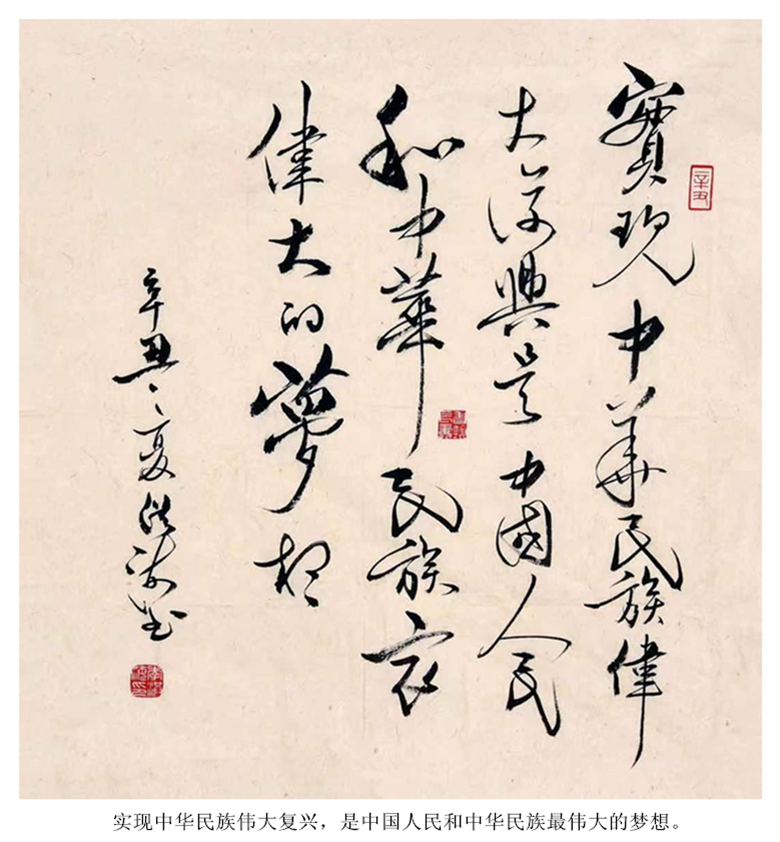 辛丑
實現中華民族偉
大復興是中國人民
和中華民族最
偉大的夢想
辛丑之夏
实现中华民族伟大复兴，是中国人民和中华民族最伟大的梦想。